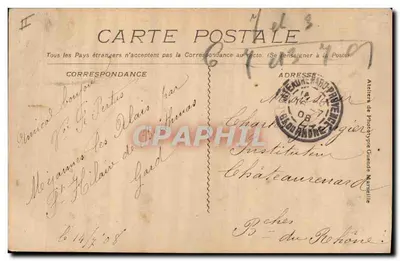 II
7 et 3
CARTE POSTALE
Tous les Pays étrangers n'acceptent pas la Correspondance au recto. (Se renseigner à la Poste)
6 7 et 3 7 9
CORRESPONDANCE
ADRESSE
Amical bonjour
Méjannes les Alais par
St Hilaire de Brethmas
Gard
le 14/2 08
Monsieur
Instituteur
Châteaurenard
Bches du Rhône
08
Ateliers de Phototypie Marseille
CPARPHIL